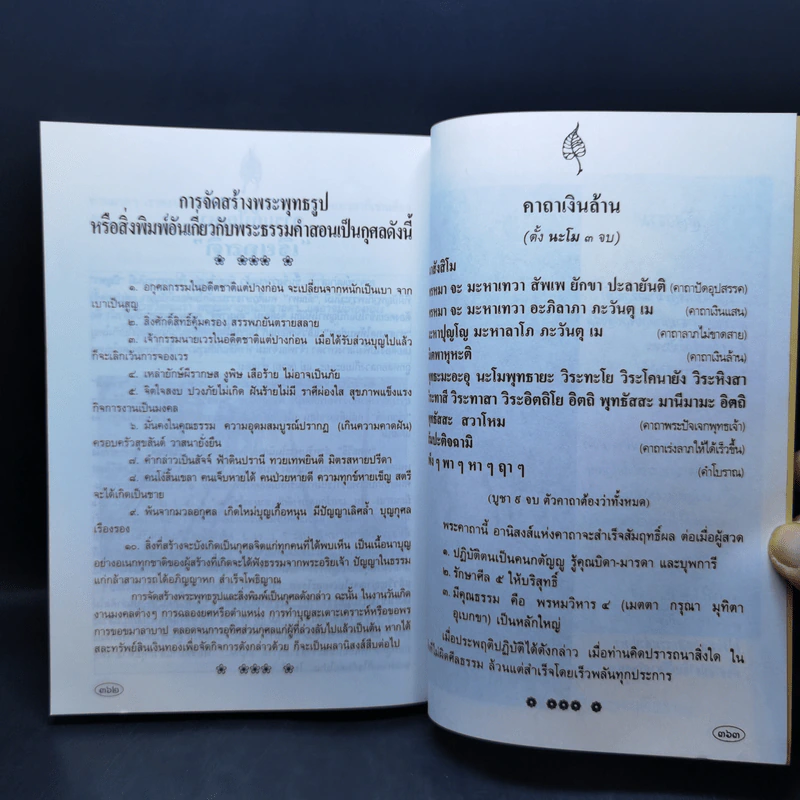 การจัดสร้างพระพุทธรูป
หรือสิ่งพิมพ์อันเกี่ยวกับพระธรรมคำสอนเป็นกุศลดังนี้
๑. อกุศลกรรมในอดีตชาติแต่ปางก่อน จะเปลี่ยนจากหนักเป็นเบา จาก
เบาเป็นสูญ
๒. สิ่งศักดิ์สิทธิ์คุ้มครอง สรรพภยันตรายสลาย
๓. เจ้ากรรมนายเวรในอดีตชาติแต่ปางก่อน เมื่อได้รับส่วนบุญไปแล้ว
ก็จะเลิกเว้นการจองเวร
๔. เหล่ายักษ์ผีรากษส งูพิษ เสือร้าย ไม่อาจเป็นภัย
๕. จิตใจสงบ ปวงภัยไม่เกิด ฝันร้ายไม่มี ราศีผ่องใส สุขภาพแข็งแรง
กิจการงานเป็นมงคล
๖. มั่นคงในคุณธรรม ความอุดมสมบูรณ์ปรากฏ (เกินความคาดฝัน)
ครอบครัวสุขสันต์ วาสนายั่งยืน
๗. คำกล่าวเป็นสัจจ์ ฟ้าดินปรานี ทวยเทพยินดี มิตรสหายปรีดา
๘. คนโง่สิ้นเขลา คนเจ็บหายได้ คนป่วยหายดี ความทุกข์หายเข็ญ สตรี
จะได้เกิดเป็นชาย
๙. พ้นจากมวลอกุศล เกิดใหม่บุญเกื้อหนุน มีปัญญาเลิศล้ำ บุญกุศล
เรืองรอง
๑๐. สิ่งที่สร้างจะบังเกิดเป็นกุศลจิตแก่ทุกคนที่ได้พบเห็น เป็นเนื้อนาบุญ
อย่างอเนกทุกชาติของผู้สร้างที่เกิดจะได้ฟังธรรมจากพระอริยเจ้า ปัญญาในธรรม
แก่กล้าสามารถได้อภิญญาหก สำเร็จโพธิญาณ
การจัดสร้างพระพุทธรูปและสิ่งพิมพ์เป็นกุศลดังกล่าว ฉะนั้น ในงานวันเกิด
งานมงคลต่างๆ การฉลองยศหรือตำแหน่ง การทำบุญสะเดาะเคราะห์หรือขอพร
การขอขมาลาบาป ตลอดจนการอุทิศส่วนกุศลแก่ผู้ที่ล่วงลับไปแล้วเป็นต้น หากได้
สละทรัพย์สินเงินทองเพื่อจัดกิจการดังกล่าวด้วย ก็จะเป็นผลานิสงส์สืบต่อไป
๓๖๒
คาถาเงินล้าน
(ตั้ง นะโม ๓ จบ)
จะ มะหาเทวา สัพเพ ยักขา ปะลายันติ (คาถาปัดอุปสรรค)
จะ มะหาเทวา อะภิลาภา ภะวันตุ เม (คาถาเงินแสน)
มะหาลาโภ ภะวันตุ เม (คาถาลาภไม่ขาดสาย)
(คาถาเงินล้าน)
นะโมพุทธายะ วิระทะโย วิระโคนายัง วิระหิงสา
วิระทาสา วิระอิตถิโย อิตถิ พุทธัสสะ มานีมามะ อิตถิ
สวาโหม (คาถาพระปัจเจกพุทธเจ้า)
(คาถาเร่งลาภให้ได้เร็วขึ้น)
ๆ พา ๆ หา ๆ ฤา ๆ (คำโบราณ)
(บูชา ๙ จบ ตัวคาถาต้องว่าทั้งหมด)
พระคาถานี้ อานิสงส์แห่งคาถาจะสำเร็จสัมฤทธิ์ผล ต่อเมื่อผู้สวด
๑. ปฏิบัติตนเป็นคนกตัญญู รู้คุณบิดา-มารดา และบุพการี
๒. รักษาศีล ๕ ให้บริสุทธิ์
๓. มีคุณธรรม คือ พรหมวิหาร ๔ (เมตตา กรุณา มุทิตา
อุเบกขา) เป็นหลักใหญ่
เมื่อประพฤติปฏิบัติได้ดังกล่าว เมื่อท่านคิดปรารถนาสิ่งใด ใน
ไม่ผิดศีลธรรม ล้วนแต่สำเร็จโดยเร็วพลันทุกประการ
๓๖๓